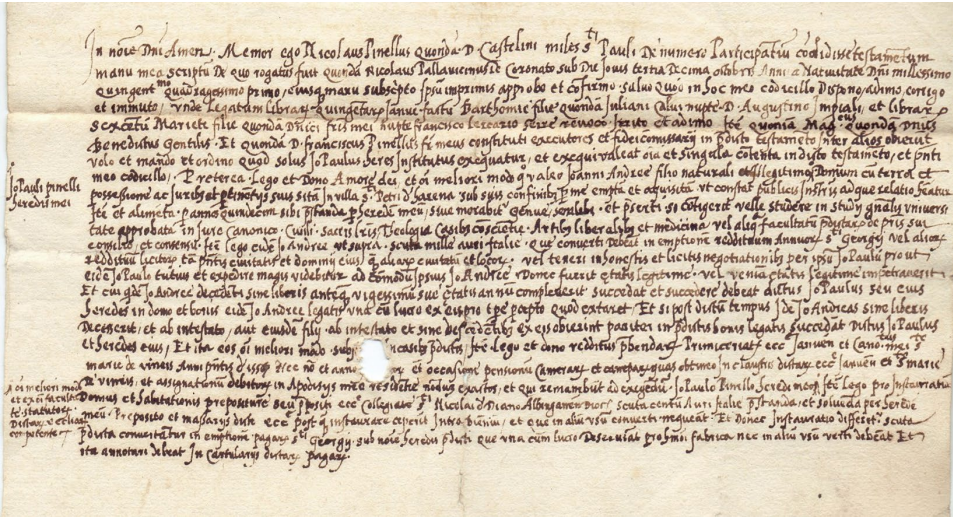 In noie Dni Amen. Memor ego Nicolaus Pinellus quonda D. Castelini miles Sti Pauli De numero Participatiu codidisse testametum
manu mea scriptu De quo rogatus fuit quonda Nicolaus Pallavicinus De Coronato sub Die Jovis tertia Decima octobris Anni a Nativitate Dni millessimo
quingentmo quadragessimo primo, eiusq manu subscepto ipsu imprimis approbo et cofirmo. salvo Quod in hoc meo codicillo Dispono, adimo, corrigo
et iminuto, unde Legatam librar quingetar Janue factu Barthomie filie quonda Juliani Calvi nupte D. Augustino Impiali, et librar
sexcentu Mariete filie quonda Dnici fris mei nupte francisco Lercario
Benedictus Gentilis. Et quonda D. franciscus Pinellus fr meus constituti executores et fideicomissarij in pdicto testameto Inter alios obierut
volo et mando et ordino quod solus Jo Paulus heres Institutus exequatur, et exequi valeat oia et singula cotenta in dicto testameto, et pnti
meo codicillo. Preterea Lego et Dono Amore dei, et oi meliori modo quo valeo Joanni Andree filio naturali et illegitimo Domum cu terra et
possessione ac Juribus et ptinetijs suis sita In villa S. Petri d harena sub suis confinibus pr me empta et aquisita ut constat publicis Instris ad que relatio heatur
Ite et alimeta pannos quindecim sibi pstanda p herede meu, sive morabit Genue, et pserti si cotigerit velle studere in study gnalis universi
tate approbata in Jure Canonico, Civili, Sacris lris Theologia Casibus coscietie, Artibus liberalibus et medicina vel aliq facultatu pdictar de pris sui
consilio, et consensu. Ite Lego eide Jo Andree ut supra scuta mille auri Italie que converti Debeat in emptione reddituum Annuor S Georgij vel alior
redditum licitor ta pntis civitatis et dominij eius q aliar civitatu et locor, vel teneri in honestis et licitis negotiationibus per ipsu Jo Paulu prout
eide Jo Paulo tutius et expedire magis videbitur ad comodu Ipsius Jo Andree Donec fuerit etatis legitime vel venia etatis legitime impetraverit
Et cui qde Jo Andree decedeti sine liberis anteq vigessimu sue etatis annu compleverit succedat et succedere debeat dictus Jo Paulus seu eius
heredes in domo et bonis eide Jo Andree legatis una cu lucro ex eis pro tpe pcepto quod extaret, Et si post dictu tempus Jde Jo Andreas sine liberis
Decesserit, et ab intestato, aut eiusde filij ab intestato et sine descedetibus ex eis obierint pariter in pdictis bonis legatis succedat Dictus Jo Paulus
et heredes eius, Et ita eos oi meliori modo sub in casibus pdictis, Ite Lego et dono redditus pbendar Primiceriat ecc Januen et Cano eius S
marie de vineis Anni pntis Nec no et annor et occasione pensionu Camerar et quas obtineo in claustris dictar ecc Januen et S marie
De vineis, et assignationu debitor in Apodisijs exactos, et qui remanebut ad exigedu Jo Paulo Pinello heredi meo Ite Lego pro Instauratione
Domus et habitationis prepositure seu ppositi ecc Collegiate S Nicolai d Diano Albinganen Dioc scuta centu Auri Italie pstanda, et solveda per herede
meu Preposito et massarijs dicte ecc postq instaurare ceperit Intro bieniu, et que in aliu usu converti nequeat. Et Donec Instauratio differetr scuta
pdicta comutatur in emptione pagar S Georgij sub noie heredu pdicti que una cum lucro Deserviat pro hmoi fabrica nec in aliu usu verti debeat Et
ita annotari debeat In Cartularijs dictar pagar.
Jo Pauli pinelli
heredis mei
A oi meliori modo
et ex oi facultate
testatoris
Dictar et etiam
competente